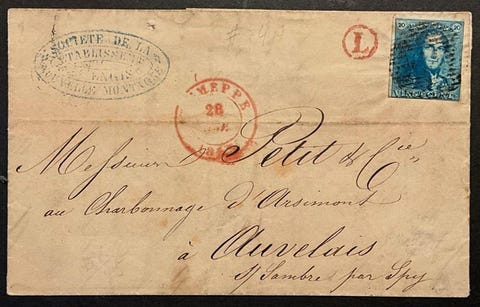 SOCIÉTÉ DE LA
ETABLISSEMT
ENGIS
NOUVELLE MONTAGNE
L
20 20
VINGT CENTs
28
Messieurs Petit & Cie
au Charbonnage d'Arsimont
à Auvelais
s/ Sambre par Spy